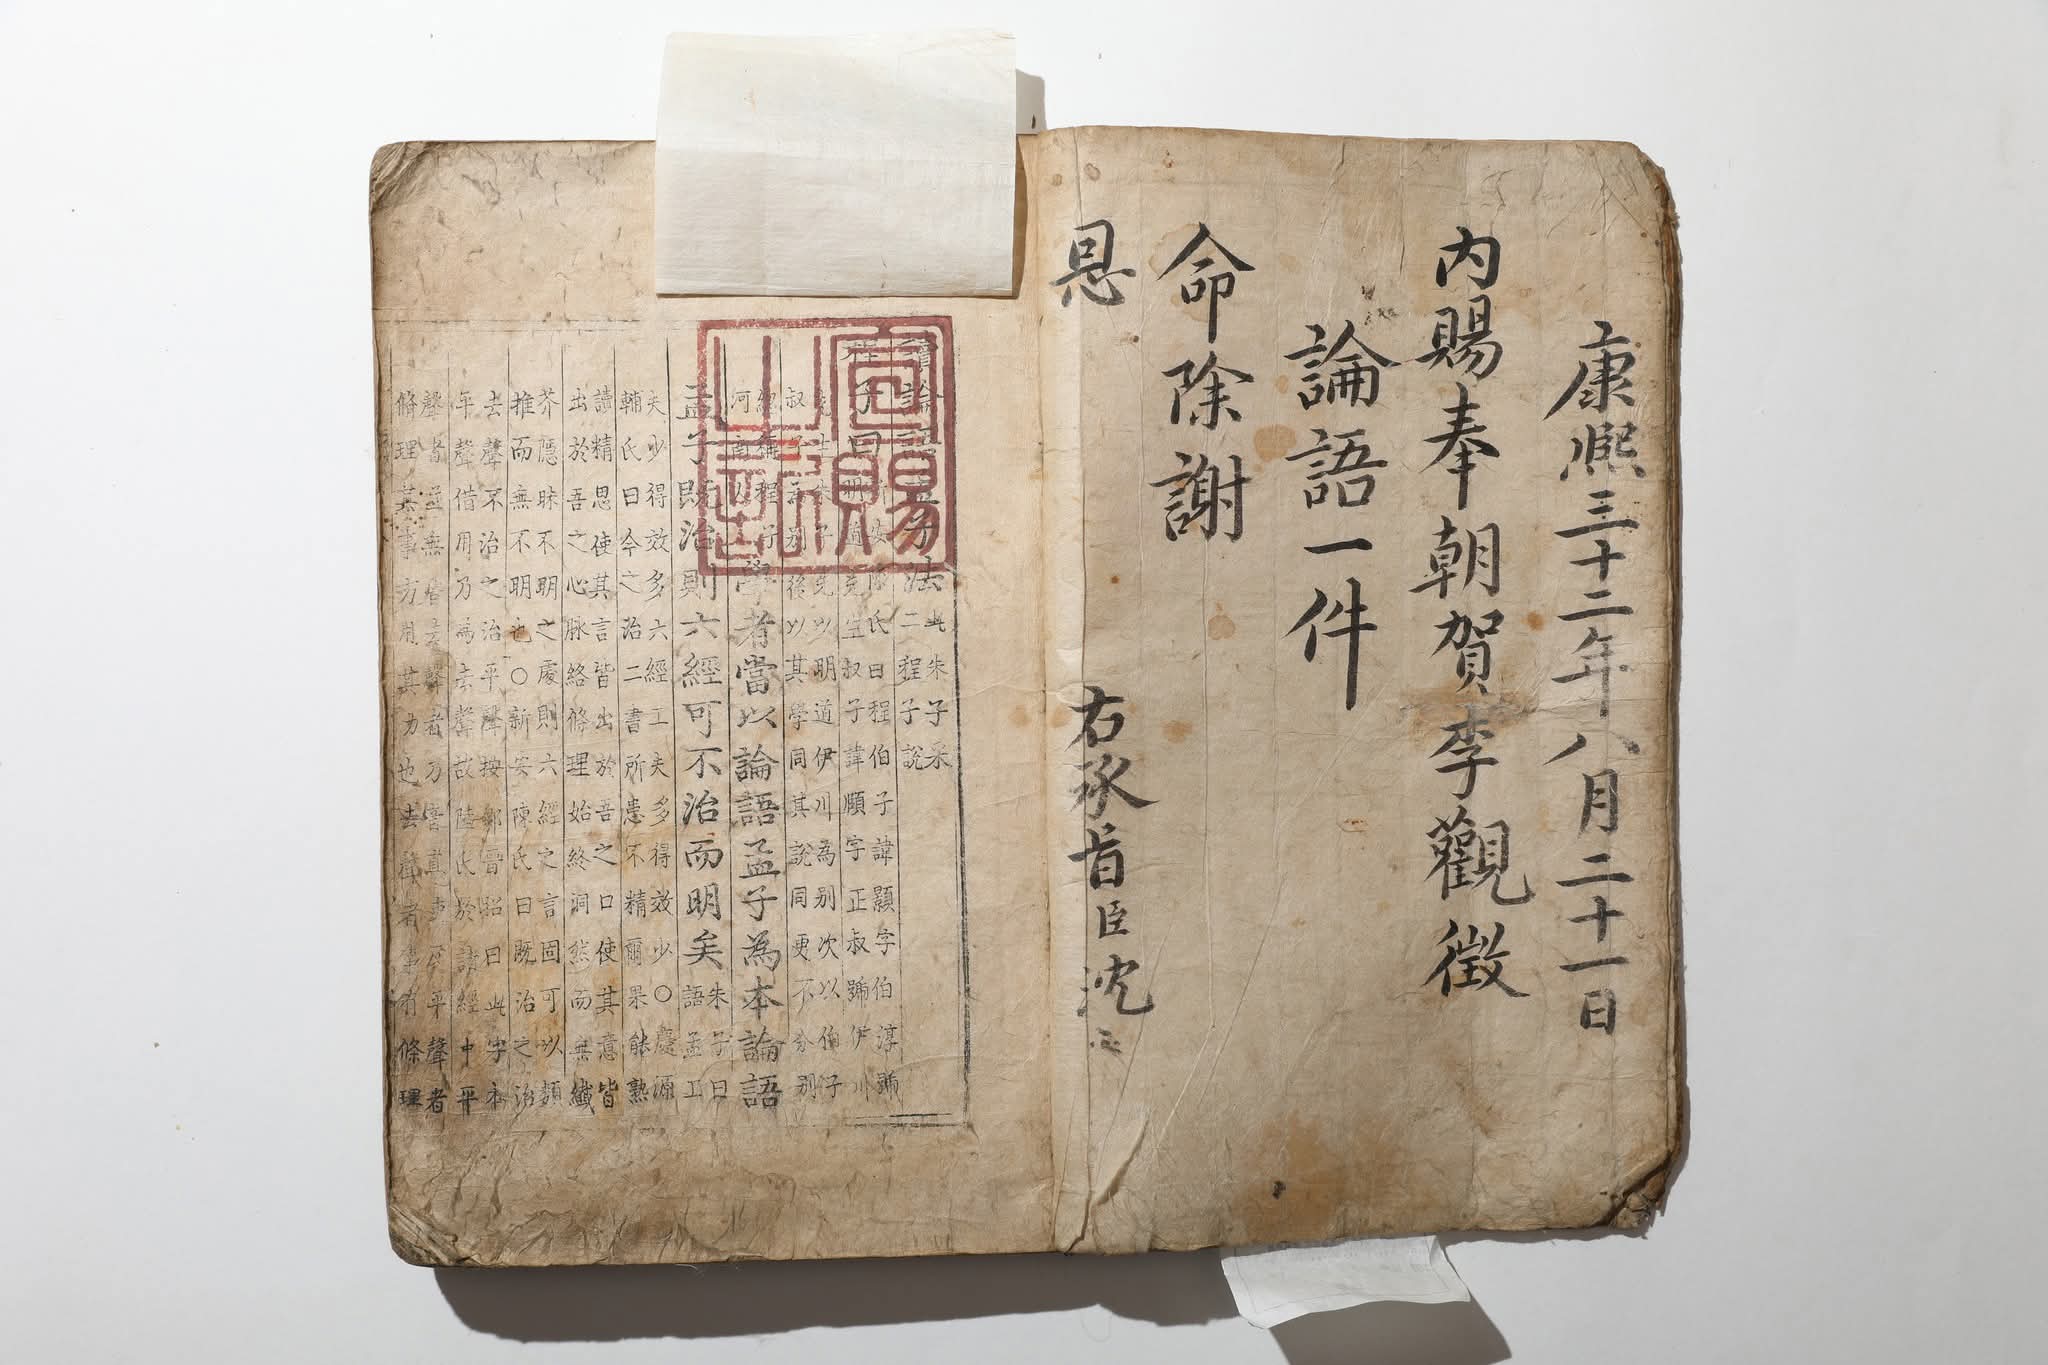 康熙三十二年八月二十一日
內賜奉朝賀李觀徵
論語一件
命除謝
恩
右承旨臣沈
宣賜之記
讀論語孟子法
此朱子采
二程子說
程子曰
新安陳氏曰程伯子諱顥字伯淳號
明道先生叔子諱頤字正叔號伊川
先生朱子以明道伊川為別次以伯子
叔子為別後以其學同其說同更不分別
總稱程子
河南人
學者當以論語孟子為本論語
孟子既治則六經可不治而明矣
朱子曰
語孟工
夫少得效多六經工夫多得效少○慶源
輔氏曰今之治二書所患不精爾果能熟
讀精思使其言皆出於吾之口使其意皆
出於吾之心脉絡條理始終洞然而無纖
芥隱昧不明之處則六經之言固可以類
推而無不明也○新安陳氏曰既治之治
去聲不治之治平聲按鄒晉昭曰此字本
平聲借用乃為去聲故陸氏於諸經中平
聲者並無音去聲者乃音直事反平聲者
脩理其事方用其力也去聲者事有條理